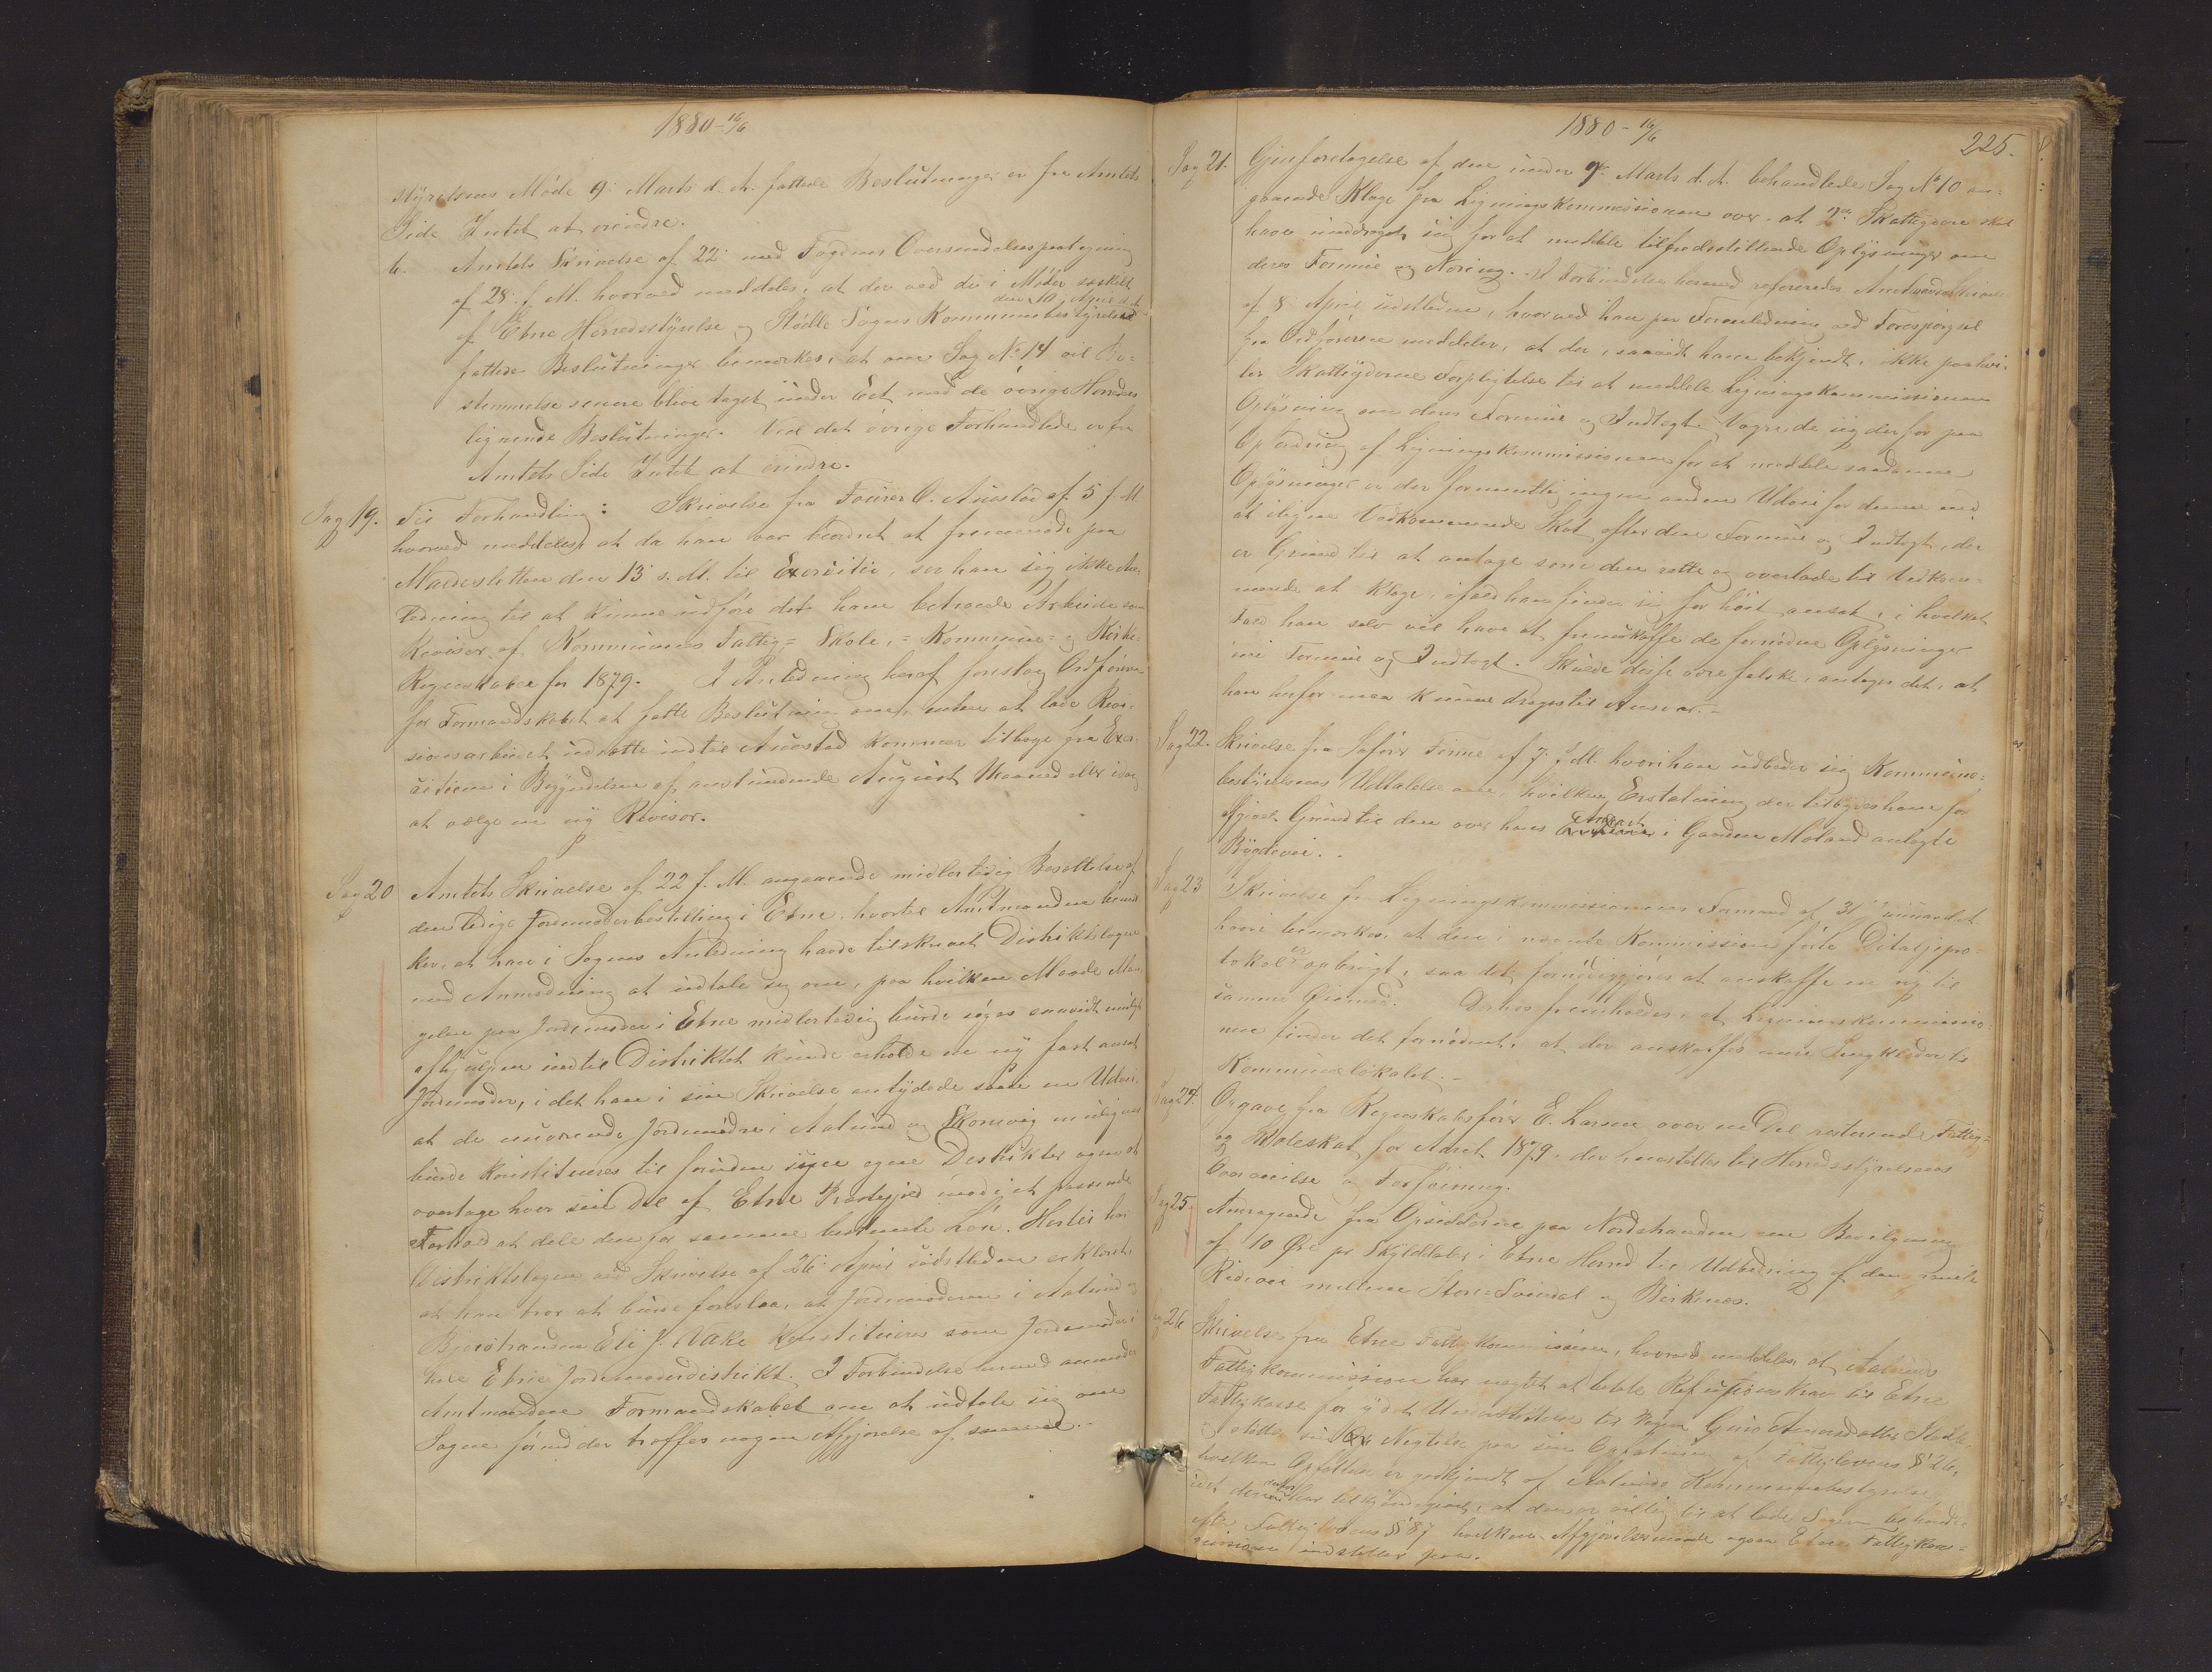 1880 - 16/6
styrelsens Møde 9. Marts d. A. fattede Beslutninger er fra Amtets
Side Intet at erindre.
b. Amtets Skrivelse af 22. med Fogdens Oversendelsespaategning
af 28. f. M. hvorved meddeles, at der ved de i Møder særskilt
den 10. April d. A.
af Etne Herredsstyrelse og Stødle Sogns Kommunebestyrelse
fattede Beslutninger bemærkes, at om Sag No 14 vil Be-
stemmelse senere blive taget under Eet med de øvrige Herreders
lignende Beslutninger. Ved det øvrige Forhandlede er fra
Amtets Side Intet at erindre.
Sag 19. Til Forhandling: Skrivelse fra Fourer O. Austad af 5 f. M.
hvorved meddeles, at da han var beordret at fremmøde paa
den 13 s. M. til Exercitie, ser han sig ikke An-
ledning til at kunne udføre det ham betroede Arbeide som
Revisor af Kommunens Fattig-, Skole-, Kommune- og Kirke-
Regnskaber for 1879. I Anledning heraf foreslog Ordføreren
for Formandskabet at fatte Beslutning om, enten at lade Revi-
sionsarbeidet indtil Austad kommer tilbage fra Exer-
citien i Begyndelsen af anstundende August Maaned eller idag
at vælge en ny Revisor.
Sag 20 Amtets Skrivelse af 22 f. M. angaaende midlertidig Besættelse af
den ledige Jordmoderbestilling i Etne, hvortil Amtmanden bemær-
ker, at han i Sagens Anledning havde tilskrevet Distriktslægen
med Anmodning at udtale sig om, paa hvilken Maade Man-
gelen paa Jordmoder i Etne midlertidig burde søges saavidt muligt
afhjulpen indtil Distriktet kunde erholde en ny fast ansat
Jordmoder, i det han i sin Skrivelse antydede som en Udvei,
at de nuværende Jordmødre i Aalund og Skonevig muligens
burde konstitueres til foruden sine egne Distrikter ogsaa at
overtage hver sin Del af Etne Præstegjeld imod i et passende
Forhold at dele den for samme bestemte Løn. Hertil har
Distriktslægen ved Skrivelse af 26. April sidstleden erklæret
at han tror at burde foreslaa, at Jordmoderen i Aalund og
Bjoestranden Eli J. Vake konstitueres som Jordmoder i
hele Etne Jordmoderdistrikt. I Forbindelse hermed anmoder
Amtmanden Formandskabet om at udtale sig om
Sagen førend der træffes nogen Afgjørelse af samme.
1880 - 16/6
225.
Sag 21. Gjenforetagelse af den under 9. Marts d. A. behandlede Sag No 10 an-
gaaende Klage fra Ligningskommissionen over, at 2de Skatteydere skal
have unddraget sig for at meddele tilfredsstillende Oplysninger om
deres Formue og Næring. I Forbindelse hermed refereredes Amtmandens Skrivelse
af 8. April sidstleden, hvorved han paa Foranledning ved Forespørgsel
fra Ordføreren meddeler, at der, saavidt ham bekjendt, ikke paahvi-
ler Skatteyderne Forpligtelse til at meddele Ligningskommissionen
Oplysning om deres Formue og Indtægt. Vægre de sig derfor paa
Opfordring af Ligningskommissionen for at meddele saadanne
Oplysninger er der formentlig ingen anden Udvei for denne end
at iligne Vedkommende Skat efter den Formue og Indtægt, der
er Grund til at antage som den rette og overlade til Vedkom-
mende at klage, ifald han finder sig for høit ansat, i hvilket
Fald han selv vil have at fremskaffe de fornødne Oplysninger
om Formue og Indtægt. Skulde disse være falske, antages det, at
han herfor maa kunne drages til Ansvar.-
Sag 22. Skrivelse fra Finne af 7. f. M. hvori han udbeder sig Kommune-
bestyrelsens Udtalelse om, hvilken Erstatning der tilbydes ham for
afgivet Grund til den over hans Anpart i Gaarden Moland anlagte
Bygdevei.
Sag 23 Skrivelse fra Ligningskommissionens Formand af 31.
hvori bemærkes, at den i nævnte Kommission førte Detaljepro-
tokol er opbrugt, saa det fornødiggjøres at anskaffe en ny til
samme Øiemed. Derhos fremholdes, at Ligningskommissio-
nen finder det fornødent, at der anskaffes
Kommunelokalet.-
Sag 24. Opgave fra Regnskabsfører E. Larsen over en Del resterende Fattig-
og Skoleskat for Aaret 1879, der henstilles til Herredsstyrelsens
og Forføining.
Sag 25. Andragende fra Opsidderne paa Nordstranden om Bevilgning
af 10 Øre pr Skylddaler i Etne Herred til Udbedring af den
Ridevei mellem Store-Svendal og Birkenæs.
Sag 26 Skrivelse fra Etne Fattigkommission, hvorved meddeles, at Aalunds
Fattigkommission har negtet at betale Refusions Krav til Etne
Fattigkasse for ydet Understøttelse til Guro
og støtter sin Negtelse paa sin Opfatning af Fattiglovens § 26,
hvilken Opfatning er godkjendt af Aalunds Kommunebestyrelse,
idet den har tilkjendegivet, at den er villig til at lade Sagen behandle
efter Fattiglovens § 87 hvilken Afgjørelsesmaade ogsaa Etne Fattigkom-
mission indstiller paa.